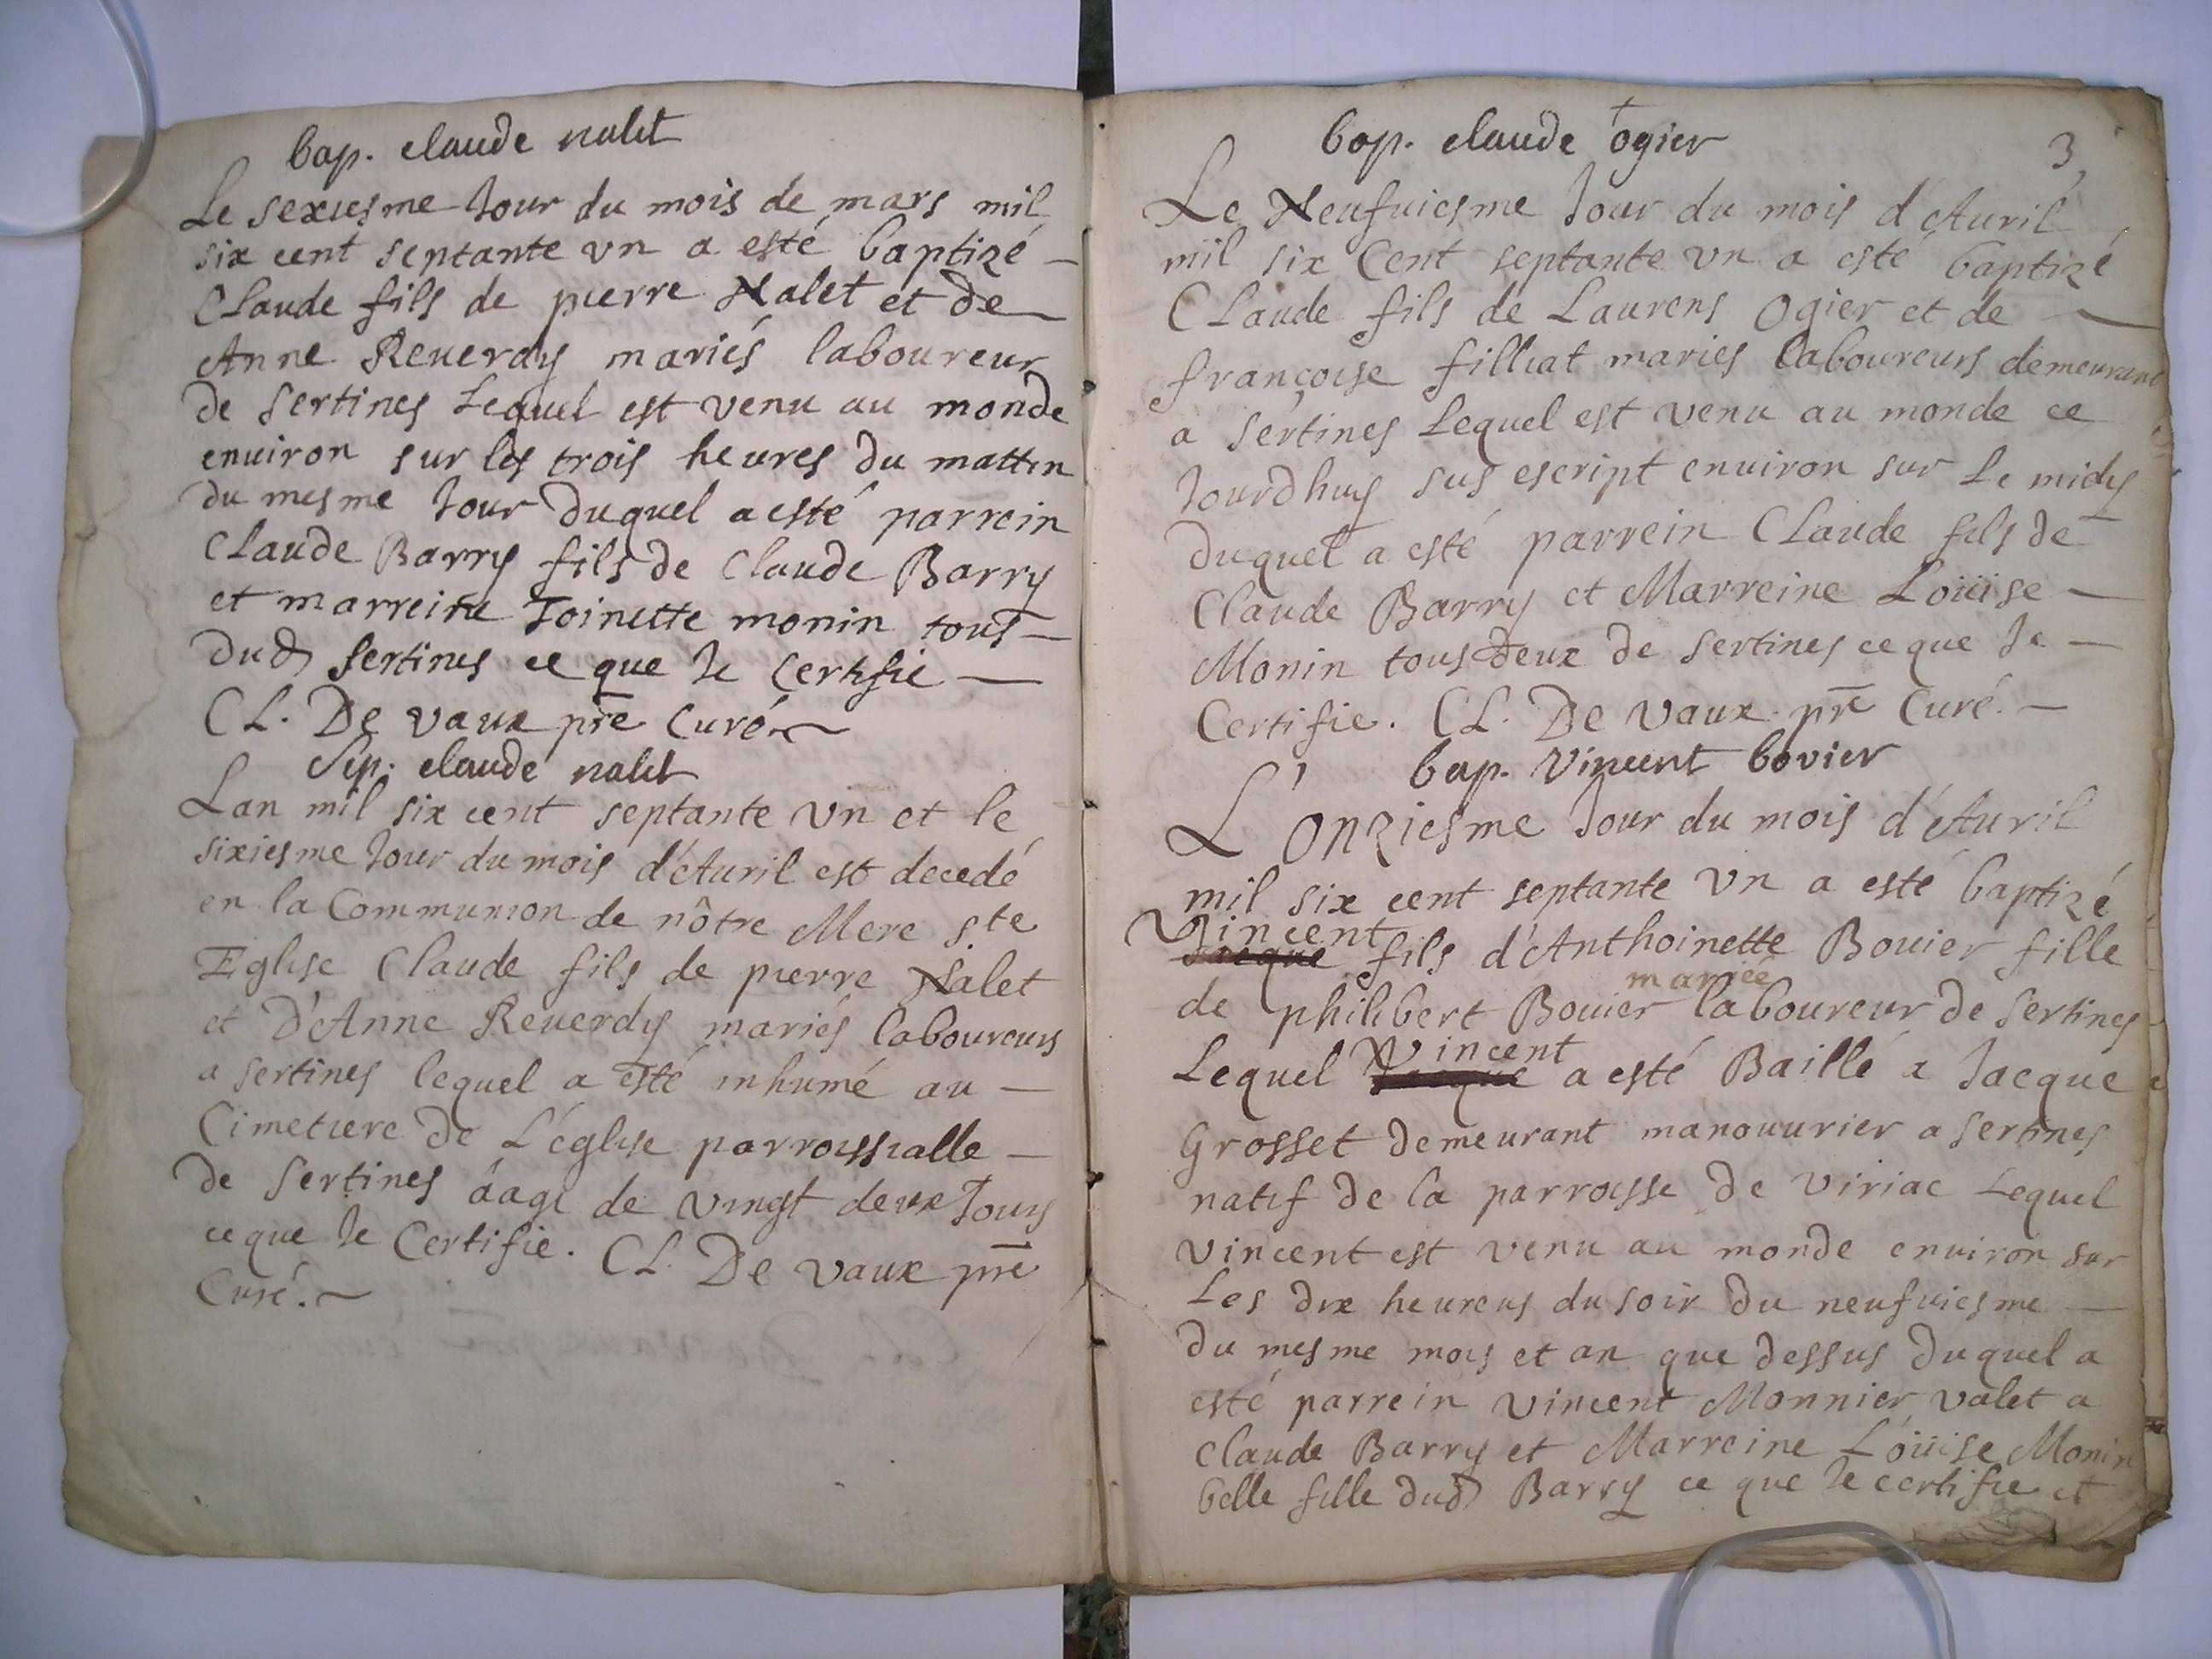 bap. claude nalet
Le sexiesme Jour du mois de mars mil
six cent septante vn a esté baptizé
Claude fils de pierre Nalet et de
Anne Reuerdy mariés laboureur
de Sertines Lequel est venu au monde
enuiron sur les trois heures du mattin
du mesme Jour duquel a esté parrein
Claude Barry fils de Claude Barry
et marreine Toinette monin tous
dud Sertines ce que Je Certifie
CL. De vaux pre Curé.
Sep. claude nalet
Lan mil six cent septante vn et le
sixiesme Jour du mois d'Auril est decedé
en la Communion de nôtre Mere ste
Eglise Claude fils de pierre Nalet
et D'Anne Reuerdy mariés laboureurs
a Sertines lequel a esté inhumé au
Cimetiere de L'église parroissialle
de Sertines áagé de vingt deux Jours
ce que Je Certifie. CL. De vaux pre
Curé.
bap. claude ogier
3
Le Neufuiesme Jour du mois d'Auril
mil six Cent septante vn a esté baptizé
CLaude fils de Laurens Ogier et de
françoise filliat maries laboureurs demeurant
a Sertines Lequel est venu au monde ce
Jourdhuy sus escript enuiron sur Le midy
duquel a esté parrein CLaude fils de
Claude Barry et Marreine Loüise
Monin tous deux de Sertines ce que Je
Certifie. CL. De vaux pr Curé.
bap. vincent bovier
L'Onziesme Jour du mois d'Auril
mil six cent septante vn a esté baptizé
Vincent
Jacque fils d'Anthoinette Bouier fille
mariée
de philibert Bouier laboureur de Sertines
Vincent
Lequel Jacque a esté Baillé a Jacque
Grosset demeurant manouurier a Sertines
natif de la parroisse de viriac Lequel
vincent est venu au monde enuiron sur
Les dix heureus du soir du neufuiesme
du mesme mois et an que dessus duquel a
esté parrein vincent Monnier valet a
Claude Barry et Marreine Loüise Monin
belle fille dud Barry ce que Je certifie et